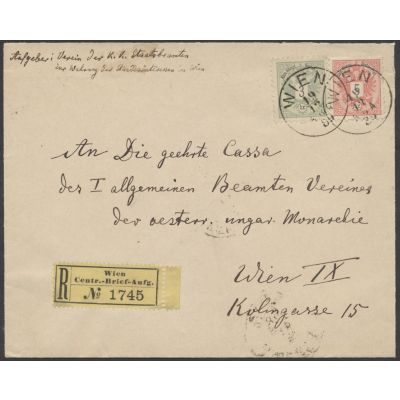 Aufgeber: Verein der K. K. Staatsbeamten
zur Wahrung der Standesinteressen in Wien
WIEN
WIEN
3
5
An Die geehrte Cassa
des I allgemeinen Beamten Vereines
der oesterr. ungar. Monarchie
Wien IX
Kolingasse 15
R
Wien
Centr.-Brief-Aufg.
№ 1745